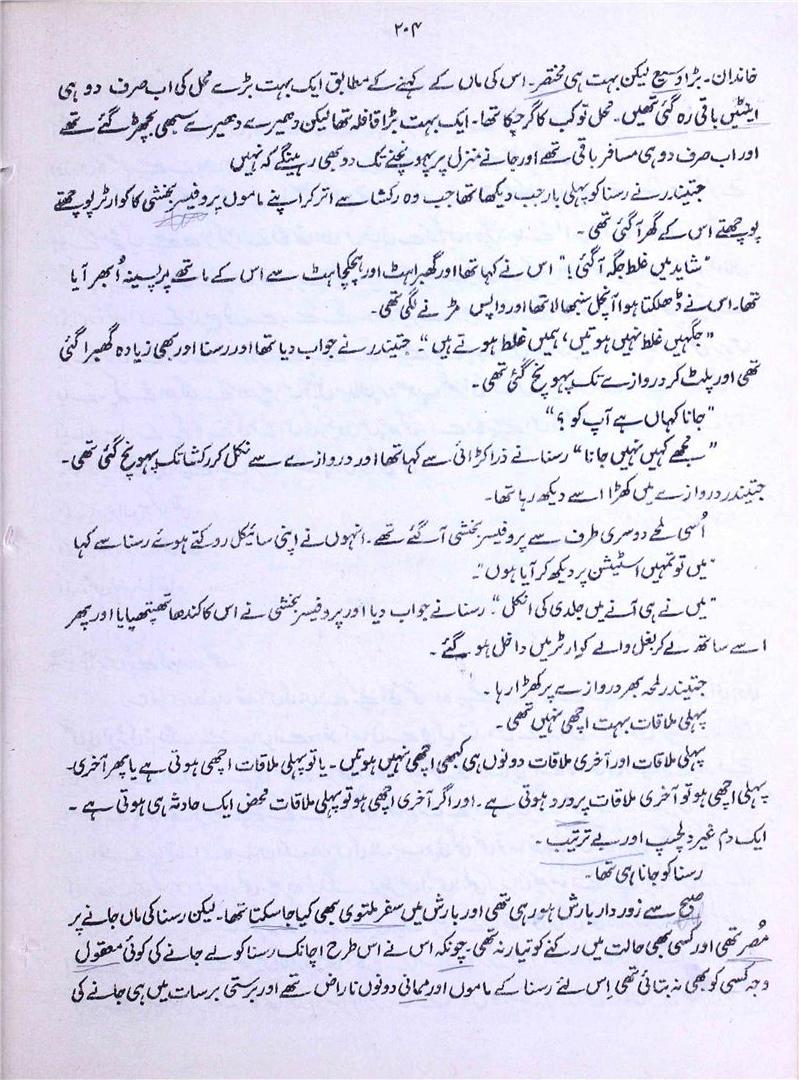 ۲۰۴
خاندان۔ بڑا وسیع لیکن بہت ہی مختصر۔ اس کی ماں کے کہنے کے مطابق ایک بہت بڑے محل کی اب صرف دو ہی
اینٹیں باقی رہ گئی تھیں۔ محل تو کب کا گر چکا تھا۔ ایک بہت بڑا قافلہ تھا لیکن دھیرے دھیرے سبھی بچھڑ گئے تھے
اور اب صرف دو ہی مسافر باقی تھے اور جانے منزل پر پہونچنے تک دو بھی رہینگے کہ نہیں
جتیندر نے رسنا کو پہلی بار جب دیکھا تھا جب وہ رکشا سے اتر کر اپنے ماموں پروفیسر بخشی کا کوارٹر پوچھتے
پوچھتے اس کے گھر آ گئی تھی۔
"شاید میں غلط جگہ آ گئی!" اس نے کہا تھا اور گھبراہٹ اور ہچکچاہٹ سے اس کے ماتھے پر پسینہ اُبھر آیا
تھا۔ اس نے ڈھلکتا ہوا آنچل سنبھالا تھا اور واپس مڑنے لگی تھی۔
"جگہیں غلط نہیں ہوتیں، ہمیں غلط ہوتے ہیں" جتیندر نے جواب دیا تھا اور رسنا اور بھی زیادہ گھبرا گئی
تھی اور پلٹ کر دروازے تک پہونچ گئی تھی۔
"جانا کہاں ہے آپ کو؟"
"مجھے کہیں نہیں جانا" رسنا نے ذرا کڑائی سے کہا تھا اور دروازے سے نکل کر رکشا تک پہونچ گئی تھی۔
جتیندر دروازے میں کھڑا اسے دیکھ رہا تھا۔
اُسی لمحے دوسری طرف سے پروفیسر بخشی آ گئے تھے۔ انہوں نے اپنی سائیکل روکتے ہوئے رسنا سے کہا
"میں تو تمہیں اسٹیشن پر دیکھ کر آیا ہوں"۔
"میں نے ہی آنے میں جلدی کی انکل"۔ رسنا نے جواب دیا اور پروفیسر بخشی نے اس کا کندھا تھپتھپایا اور پھر
اسے ساتھ لے کر بغل والے کوارٹر میں داخل ہو گئے۔
جتیندر لمحہ بھر دروازے پر کھڑا رہا۔
پہلی ملاقات بہت اچھی نہیں تھی۔
پہلی ملاقات اور آخری ملاقات دونوں ہی کبھی اچھی نہیں ہوتیں۔ یا تو پہلی ملاقات اچھی ہوتی ہے یا پھر آخری۔
پہلی اچھی ہو تو آخری ملاقات پر درد ہوتی ہے۔ اور اگر آخری اچھی ہو تو پہلی ملاقات محض ایک حادثہ ہی ہوتی ہے۔
ایک دم غیر دلچسپ اور بے ترتیب۔
رسنا کو جانا ہی تھا۔
صبح سے زور دار بارش ہو رہی تھی اور بارش میں سفر ملتوی بھی کیا جا سکتا تھا۔ لیکن رسنا کی ماں جانے پر
مُصر تھی اور کسی بھی حالت میں رکنے کو تیار نہ تھی۔ چونکہ اس نے اس طرح اچانک رسنا کو لے جانے کی کوئی معقول
وجہ کسی کو بھی نہ بتائی تھی اِس لئے رسنا کے ماموں اور ممانی دونوں ناراض تھے اور برستی برسات میں ہی جانے کی